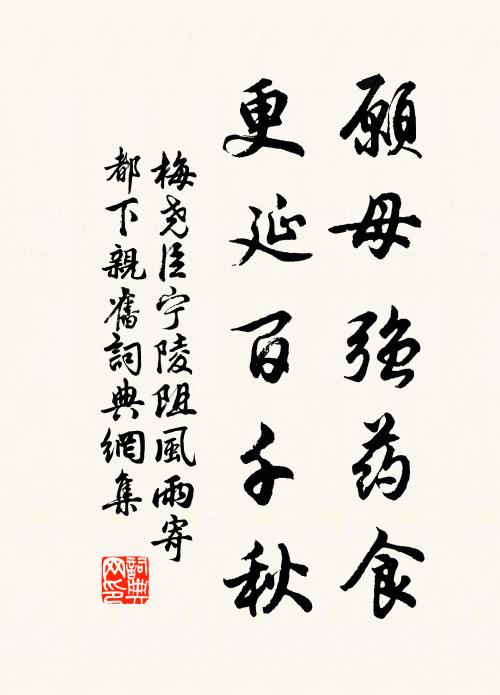 願母強药食
更延百千秋
梅尧臣宁陵阻風雨寄
都下親舊詞典網集
詞典网印